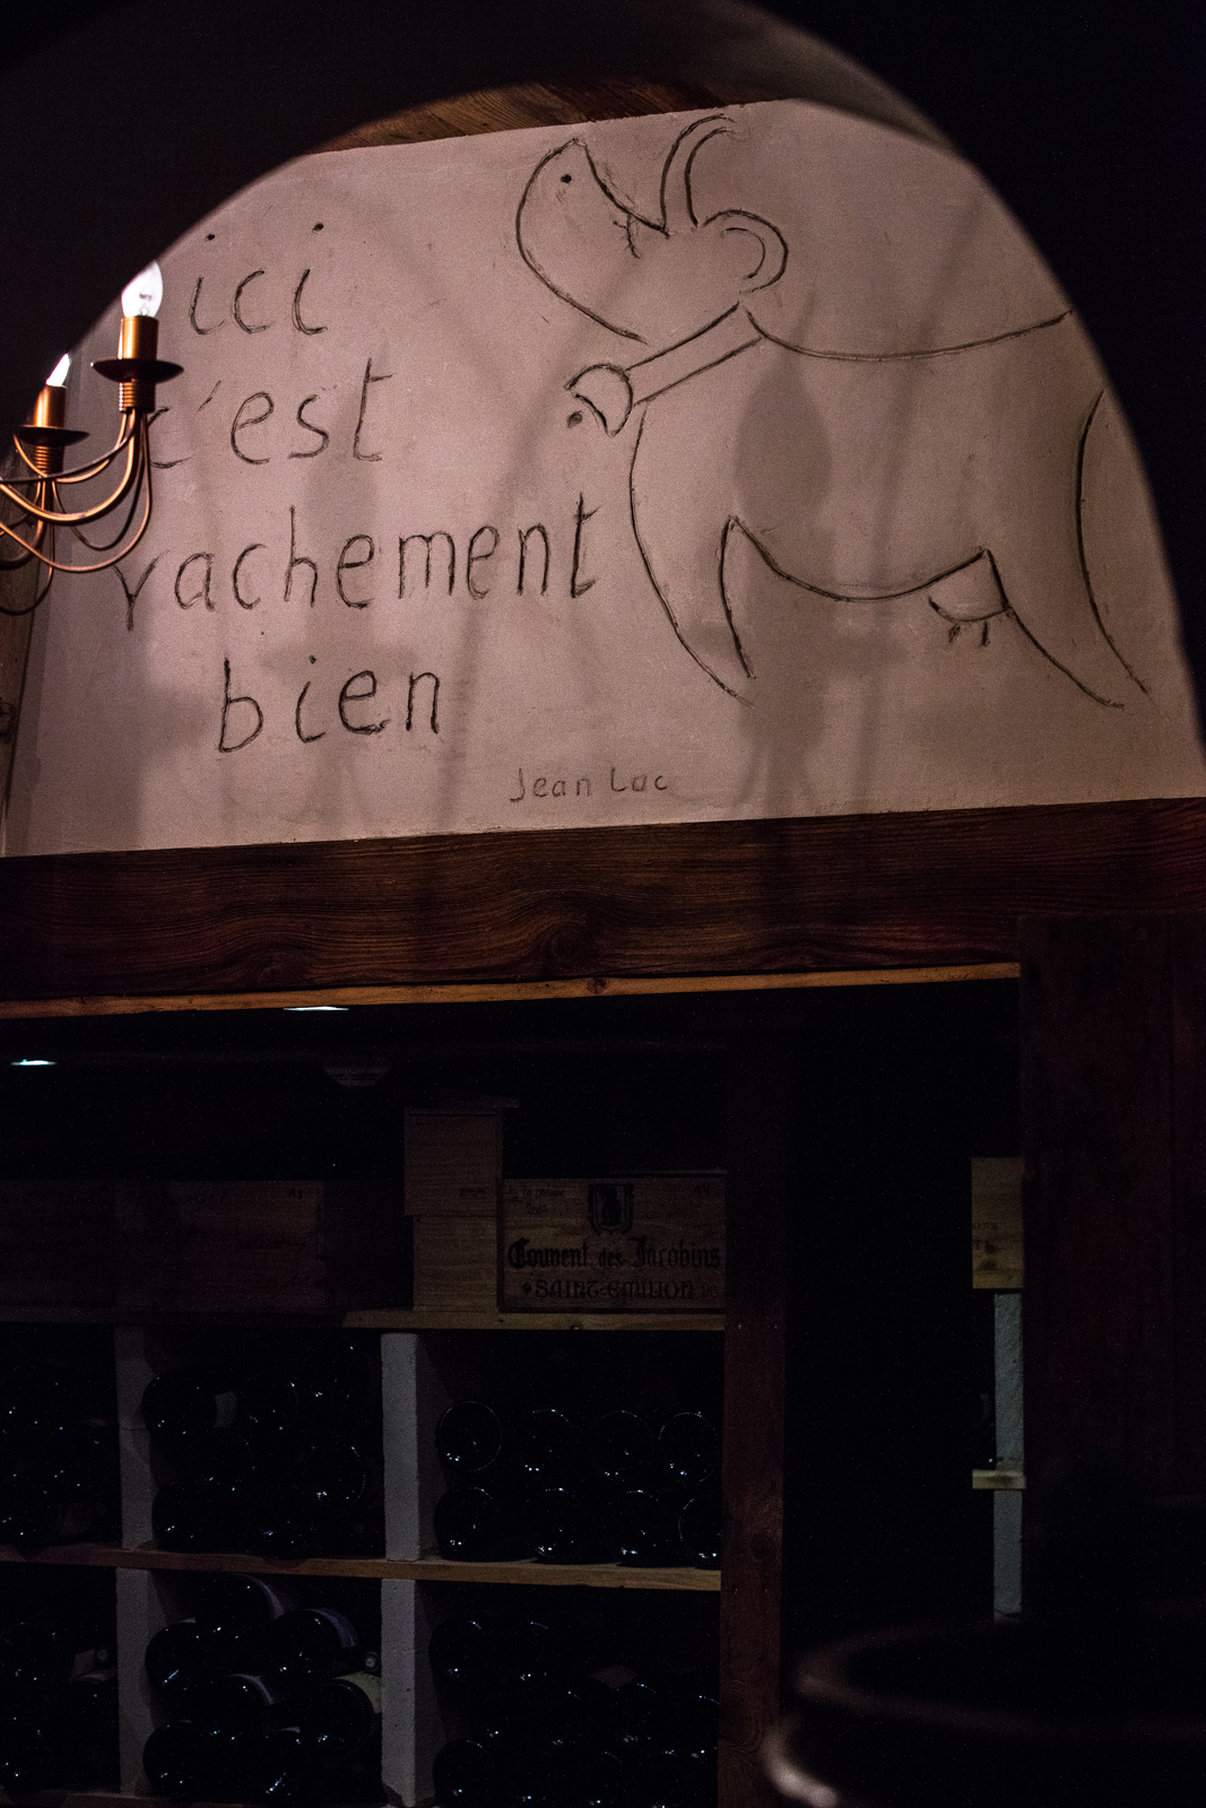 ici
c'est
vachement
bien
Jean Luc
Couvent des Jacobins
SAINT-EMILION